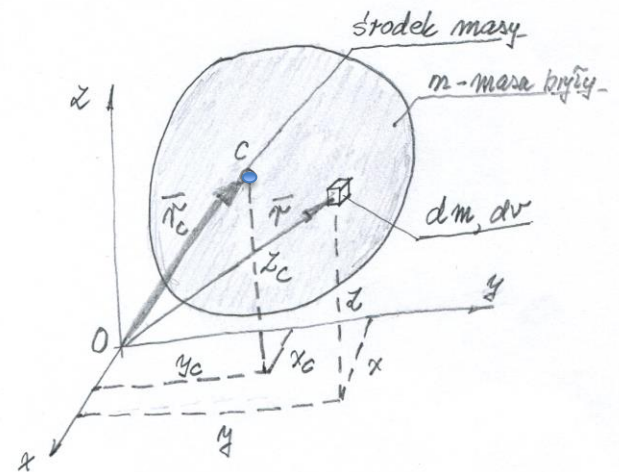 środek masy
m-masa bryły
z
C
r̄c
r̄
dm, dv
zc
z
y
O
yc
xc
x
y
x